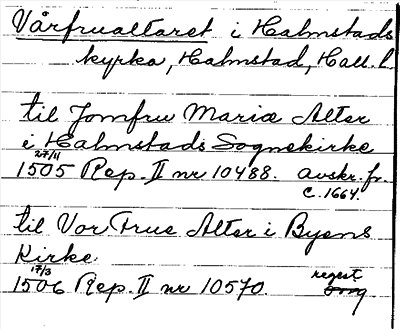 Vårfrualtaret i Halmstads
kyrka, Halmstad, Hall. l.
til Jomfru Mariæ Alter
i Halmstads Sognekirke
27/11
1505 Rep. II nr 10488. avskr. fr.
c. 1664.
til Vor Frue Alter i Byens
Kirke
17/3
1506 Rep. II nr 10570. regest